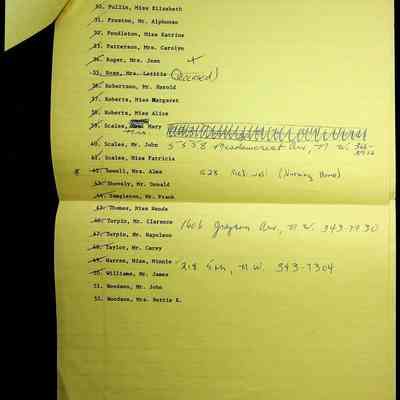 30. Pullin, Miss Elizabeth
31. Preston, Mr. Alphonso
32. Pendleton, Miss Katrine
33. Patterson, Mrs. Carolyn
34. Roger, Mrs. Jean +
35. Ross, Mrs. Letitia (Deceased)
36. Robertson, Mr. Harold
37. Roberts, Miss Margaret
38. Roberts, Miss Alice
39. Scales, Mary
40. Scales, Mr. John 5338 Meadowcrest Av., N.W.
41. Scales, Miss Patricia
42. Sewell, Mrs. Alma 628 (Nursing Home)
43. Shovely, Mr. Donald
44. Templeton, Mr. Frank
45. Thomas, Miss Wanda
46. Turpin, Mr. Clarence 1606 Grayson Av., N.W. 343-7930
47. Turpin, Mr. Napoleon
48. Taylor, Mr. Carey
49. Warren, Miss Minnie 218 5th, N.W. 343-7304
50. Williams, Mr. James
51. Woodson, Mr. John
52. Woodson, Mrs. Bettie K.